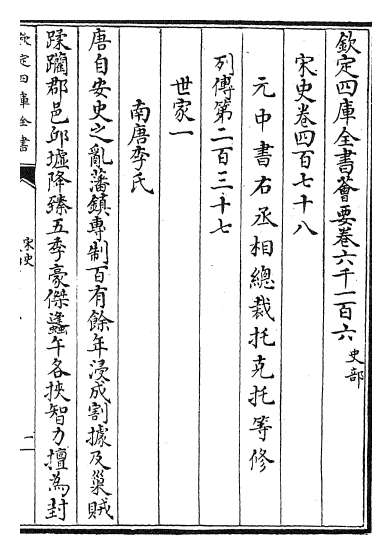 欽定四庫全書薈要卷六千一百六 史部
宋史卷四百七十八
元中書右丞相總裁托克托等修
列傳第二百三十七
世家一
南唐李氏
唐自安史之亂藩鎮專制百有餘年浸成割據及巢賊
蹂躪郡邑邱墟降臻五季豪傑蠭午各挾智力擅為封
欽定四庫全書
宋史
一